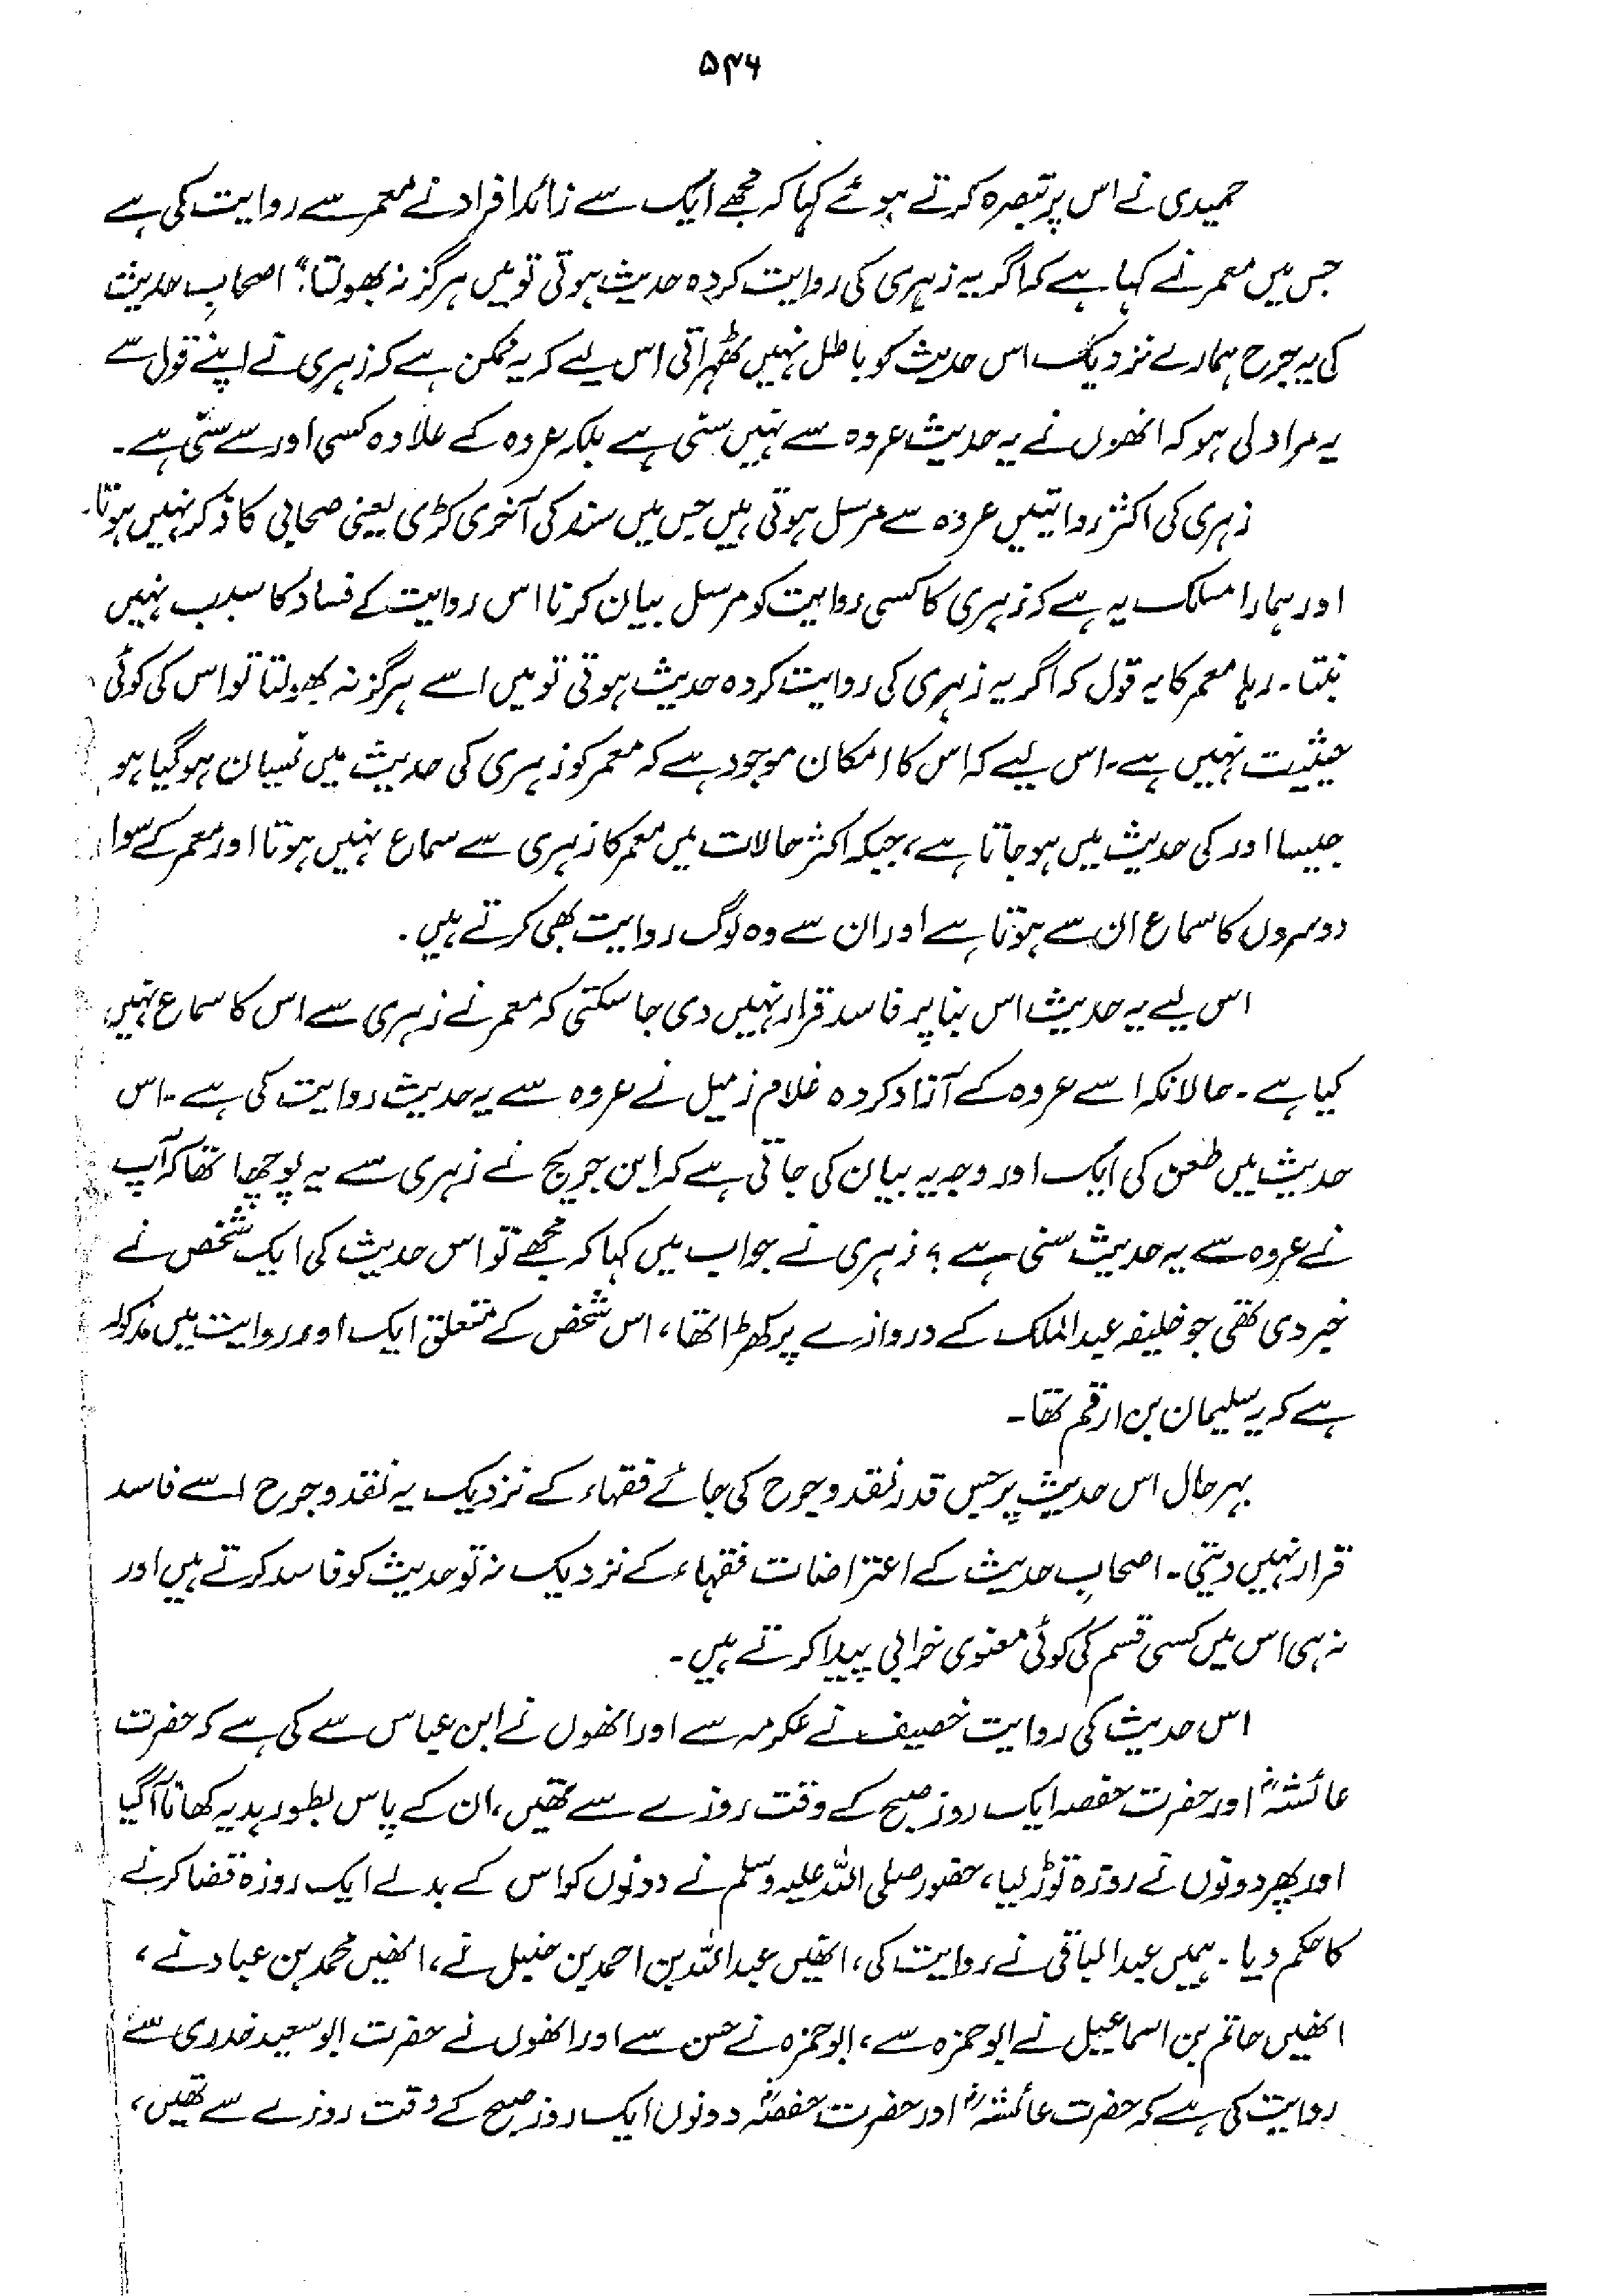 ۵۴۶
حمیدی نے اس پر تبصرہ کرتے ہوئے کہا کہ مجھے ایک سے زائد افراد نے معمر سے روایت کی ہے
جس میں معمر نے کہا ہے کہ اگر یہ زہری کی روایت کردہ حدیث ہوتی تو میں ہرگز نہ بھولتا؛" اصحابِ حدیث
کی یہ جرح ہمارے نزدیک اس حدیث کو باطل نہیں ٹھہراتی اس لیے کہ یہ ممکن ہے کہ زہری نے اپنے قول سے
یہ مراد لی ہو کہ انھوں نے یہ حدیث عروہ سے نہیں سنی ہے بلکہ عروہ کے علاوہ کسی اور سے سنی ہے۔
زہری کی اکثر روایتیں عروہ سے مرسل ہوتی ہیں جس میں سند کی آخری کڑی یعنی صحابی کا ذکر نہیں ہوتا۔
اور ہمارا مسلک یہ ہے کہ زہری کا کسی روایت کو مرسل بیان کرنا اس روایت کے فساد کا سبب نہیں
بنتا۔ رہا معمر کا یہ قول کہ اگر یہ زہری کی روایت کردہ حدیث ہوتی تو میں اسے ہرگز نہ بھولتا تو اس کی کوئی
حیثیت نہیں ہے۔ اس لیے کہ اس کا امکان موجود ہے کہ معمر کو زہری کی حدیث میں نسیان ہو گیا ہو
جیسا اور کی حدیث میں ہو جاتا ہے، جبکہ اکثر حالات میں معمر کا زہری سے سماع نہیں ہوتا اور معمر کے سوا
دوسروں کا سماع ان سے ہوتا ہے اور ان سے وہ لوگ روایت بھی کرتے ہیں۔
اس لیے یہ حدیث اس بنا پر فاسد قرار نہیں دی جا سکتی کہ معمر نے زہری سے اس کا سماع نہیں
کیا ہے۔ حالانکہ اسے عروہ کے آزاد کردہ غلام زمیل نے عروہ سے یہ حدیث روایت کی ہے۔ اس
حدیث میں طعن کی ایک اور وجہ یہ بیان کی جاتی ہے کہ ابن جریج نے زہری سے یہ پوچھا تھا کہ آپ
نے عروہ سے یہ حدیث سنی ہے؟ زہری نے جواب میں کہا کہ مجھے تو اس حدیث کی ایک شخص نے
خبر دی تھی جو خلیفہ عبدالملک کے دروازے پر کھڑا تھا، اس شخص کے متعلق ایک اور روایت میں مذکور
ہے کہ یہ سلیمان بن ارقم تھا۔
بہرحال اس حدیث پر جس قدر نقد و جرح کی جائے فقہاء کے نزدیک یہ نقد و جرح اسے فاسد
قرار نہیں دیتی۔ اصحابِ حدیث کے اعتراضات فقہاء کے نزدیک نہ تو حدیث کو فاسد کرتے ہیں اور
نہ ہی اس میں کسی قسم کی کوئی معنوی خرابی پیدا کرتے ہیں۔
اس حدیث کی روایت خصیف نے عکرمہ سے اور انھوں نے ابن عباس سے کی ہے کہ حضرت
عائشہؓ اور حضرت حفصہ ایک روز صبح کے وقت روزے سے تھیں، ان کے پاس بطور ہدیہ کھانا آگیا
اور پھر دونوں نے روزہ توڑ لیا، حضور صلی اللہ علیہ وسلم نے دونوں کو اس کے بدلے ایک روزہ قضا کرنے
کا حکم دیا۔ ہمیں عبدالباقی نے روایت کی، انھیں عبداللہ بن احمد بن حنبل نے، انھیں محمد بن عباد نے،
انھیں حاتم بن اسماعیل نے ابوحمزہ سے، ابوحمزہ نے حسن سے اور انھوں نے حضرت ابو سعید خدری سے
روایت کی ہے کہ حضرت عائشہؓ اور حضرت حفصہؓ دونوں ایک روز صبح کے وقت روزے سے تھیں،